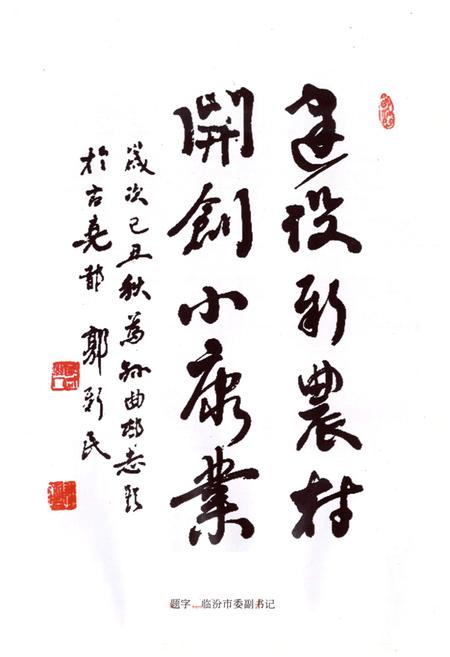 建设新農村
開創小康業
歲次己丑秋為孙曲邨志题
於古堯都 郭新民
题字 临汾市委副书记